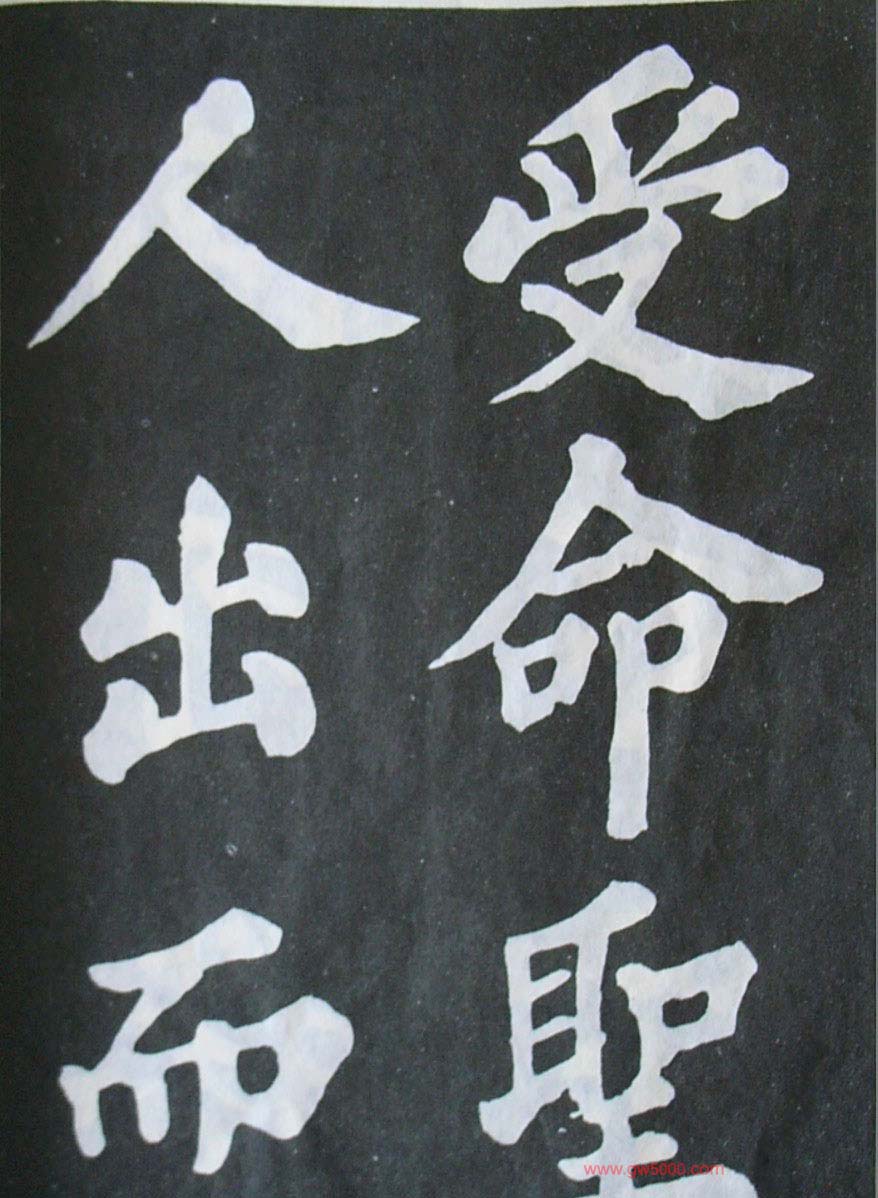 受命聖
人出而
www.gw5000.com